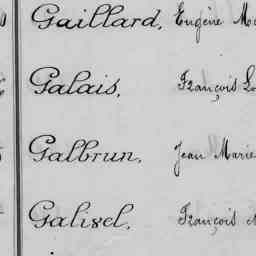 Gaillard, Eugène
Galais, François
Galbrun, Jean Marie
Galisel, François